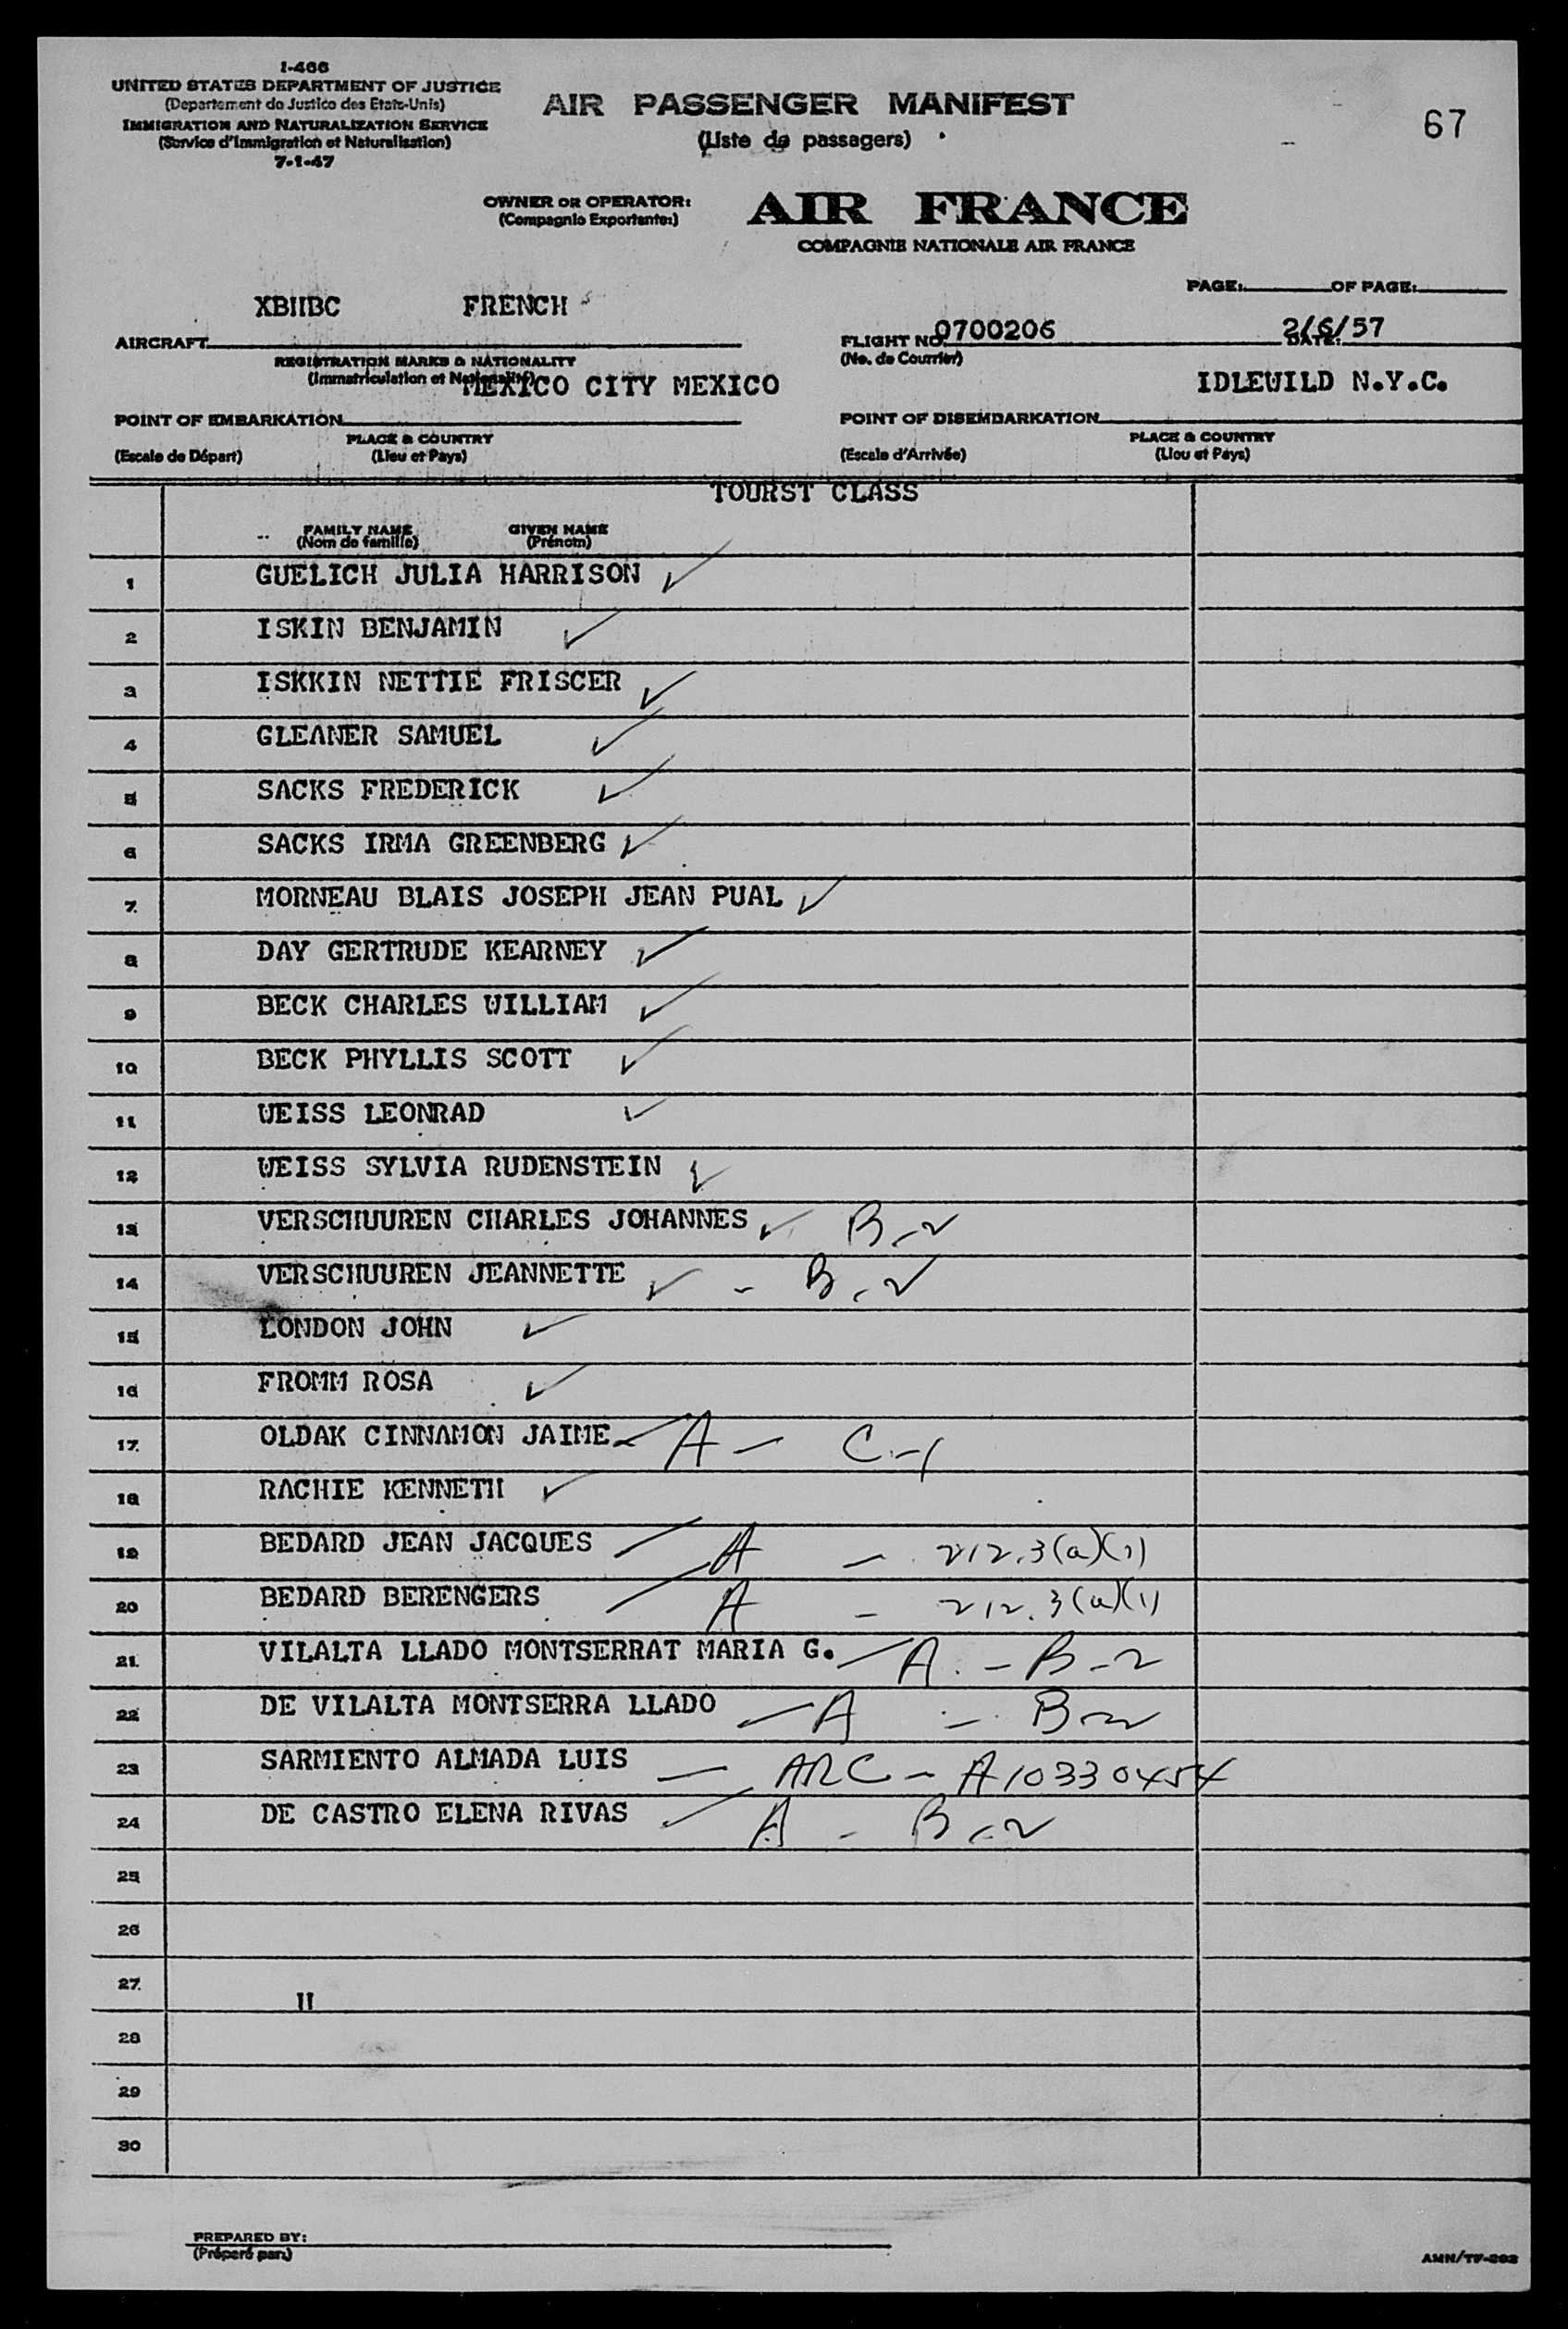 I-466
UNITED STATES DEPARTMENT OF JUSTICE
(Departement de Justice des Etats-Unis)
IMMIGRATION AND NATURALIZATION SERVICE
(Service d'Immigration et Naturalisation)
7-1-47
AIR PASSENGER MANIFEST
(Liste de passagers)
67
OWNER OR OPERATOR: AIR FRANCE
(Compagnie Exportante:)
COMPAGNIE NATIONALE AIR FRANCE
PAGE: OF PAGE:
XBIIBC FRENCH
AIRCRAFT
REGISTRATION MARKS & NATIONALITY
(Immatriculation et Nationalité)
FLIGHT NO. 0700206 DATE: 2/6/57
(No. de Courrier)
MEXICO CITY MEXICO
IDLEWILD N.Y.C.
POINT OF EMBARKATION
PLACE & COUNTRY
(Escale de Départ) (Lieu et Pays)
POINT OF DISEMBARKATION
PLACE & COUNTRY
(Escale d'Arrivée) (Lieu et Pays)
TOURST CLASS
FAMILY NAME GIVEN NAME
(Nom de famille) (Prénom)
1 GUELICH JULIA HARRISON ✓
2 ISKIN BENJAMIN ✓
3 ISKKIN NETTIE FRISCER ✓
4 GLEANER SAMUEL ✓
5 SACKS FREDERICK ✓
6 SACKS IRMA GREENBERG ✓
7 MORNEAU BLAIS JOSEPH JEAN PUAL ✓
8 DAY GERTRUDE KEARNEY ✓
9 BECK CHARLES WILLIAM ✓
10 BECK PHYLLIS SCOTT ✓
11 WEISS LEONRAD ✓
12 WEISS SYLVIA RUDENSTEIN ✓
13 VERSCHUUREN CHARLES JOHANNES ✓ B-2
14 VERSCHUUREN JEANNETTE ✓ - B-2
15 LONDON JOHN ✓
16 FROMM ROSA ✓
17 OLDAK CINNAMON JAIME A - C-1
18 RACHIE KENNETH ✓
19 BEDARD JEAN JACQUES A - 212.3(a)(1)
20 BEDARD BERENGERS A - 212.3(a)(1)
21 VILALTA LLADO MONTSERRAT MARIA G. A - B-2
22 DE VILALTA MONTSERRA LLADO A - B-2
23 SARMIENTO ALMADA LUIS - ARC - A10330454
24 DE CASTRO ELENA RIVAS A - B-2
25
26
27 II
28
29
30
PREPARED BY:
(Préparé par:)